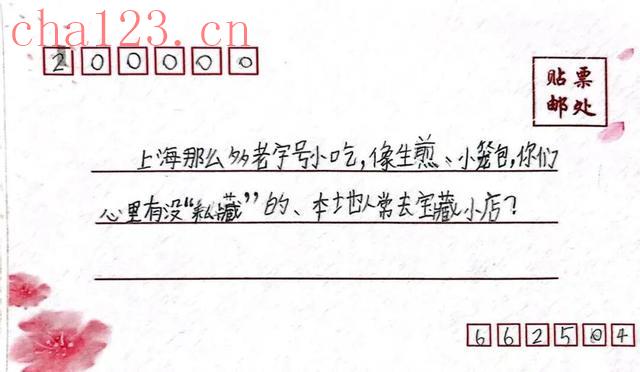 cha123.cn
200000
贴票
邮处
上海那么多老字号小吃,像生煎、小笼包,你们
心里有没"私藏"的、本地人常去宝藏小店?
662504